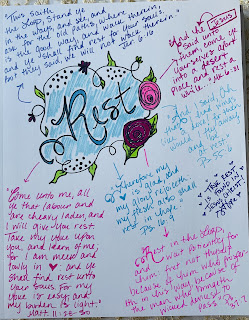 Thus saith
the LORD, Stand ye in
the ways, and see, and
ask for the old paths, where
is the good way, and walk therein,
& ye shall find rest for your souls.
But they said, We will not walk therein.
Jer. 6:16
And he
JESUS
said unto
them, Come ye
yourselves apart
into a desert
place, and rest a
while.
Rest
And I said, Oh
that I had wings
like a dove! for then
would I fly away,
and be at
rest.
Therefore my
heart is glad, and
my glory rejoiceth:
my flesh also shall
rest in hope.
Ps. 16:9
Come unto me, all
ye that labour and
are heavy laden, and
I will give you rest.
Take my yoke upon
you, and learn of me;
for I am meek and
lowly in ♥: and ye
shall find rest unto
your souls. For my
yoke is easy, and
my burden is light."
Matt. 11:28-30
Rest in the LORD,
and wait patiently for
him: fret not thyself
because of him who prosper-
eth in his way, because of
the man who bringeth
wicked devices to
pass.